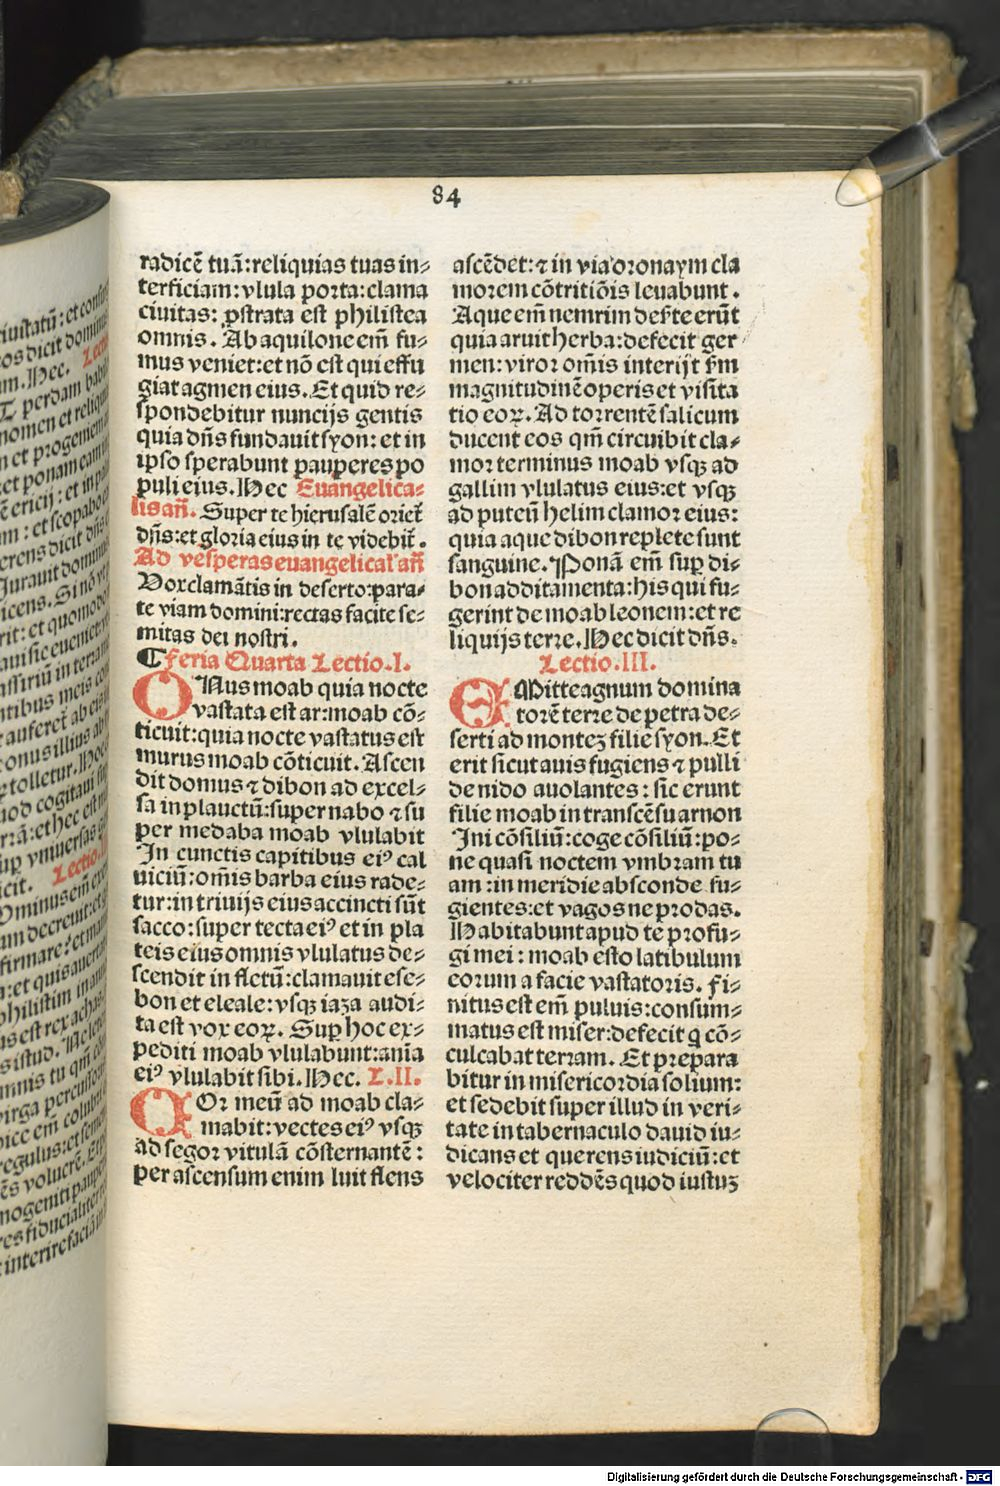 84
radicē tuā:reliquias tuas in⸗
terficiam:vlula porta:clama
ciuitas: ꝓstrata est philistea
omnis. Ab aquilone em̄ fu⸗
mus veniet:et nō est qui effu
giat agmen eius. Et quid re⸗
spondebitur nuncijs gentis
quia dn̄s fundauit syon: et in
ipso sperabunt pauperes po
puli eius. Hec Euangelica⸗
lis an̄. Super te hierusalē oriet̄
dn̄s:et gloria eius in te videbit̄.
Ad vesperas euangelical' an̄
Vox clamātis in deserto:para⸗
te viam domini:rectas facite se⸗
mitas dei nostri.
¶ feria Quarta Lectio.I.
ONus moab quia nocte
vastata est ar:moab cō⸗
ticuit:quia nocte vastatus est
murus moab cōticuit. Ascen
dit domus ⁊ dibon ad excel⸗
sa in planctū:super nabo ⁊ su
per medaba moab vlulabit
In cunctis capitibus eiꝰ cal
uiciū:om̄is barba eius rade⸗
tur:in triuijs eius accincti sūt
sacco:super tecta eiꝰ et in pla
teis eius omnis vlulatus de⸗
scendit in fletū:clamauit ese⸗
bon et eleale:vsqꝫ iaza audi⸗
ta est vox eoꝝ. Suꝑ hoc ex⸗
pediti moab vlulabunt:anīa
eiꝰ vlulabit sibi. Hec. L.II.
COr meū ad moab cla⸗
mabit:vectes eiꝰ vsqꝫ
ad segor vitulā cōsternantē:
per ascensum enim luit flens
ascēdet:⁊ in via oronaym cla
morem cōtritiōis leuabunt.
Aque em̄ nemrim deserte erūt
quia aruit herba:defecit ger
men:viror om̄is interijt sm̄
magnitudinē operis et visita
tio eoꝝ. Ad torrentē salicum
ducent eos qm̄ circuibit cla⸗
mor terminus moab vsqꝫ ad
gallim vlulatus eius:et vsqꝫ
ad puteū helim clamor eius:
quia aque dibon replete sunt
sanguine. Ponā em̄ suꝑ di⸗
bon additamenta:his qui fu⸗
gerint de moab leonem:et re
liquijs terre. Hec dicit dn̄s.
Lectio.III.
EMitte agnum domina
torē terre de petra de⸗
serti ad monteꝫ filie syon. Et
erit sicut auis fugiens ⁊ pulli
de nido auolantes: sic erunt
filie moab in transcēsu arnon
Ini cōsiliū:coge cōsiliū:po⸗
ne quasi noctem vmbram tu
am:in meridie absconde fu⸗
gientes:et vagos ne prodas.
Habitabunt apud te profu⸗
gi mei: moab esto latibulum
eorum a facie vastatoris. fi⸗
nitus est em̄ puluis:consum⸗
matus est miser:defecit q̄ cō⸗
culcabat terram. Et prepara
bitur in misericordia solium:
et sedebit super illud in veri⸗
tate in tabernaculo dauid iu⸗
dicans et querens iudiciū:et
velociter reddēs quod iustuꝫ
Digitalisierung gefördert durch die Deutsche Forschungsgemeinschaft - DFG